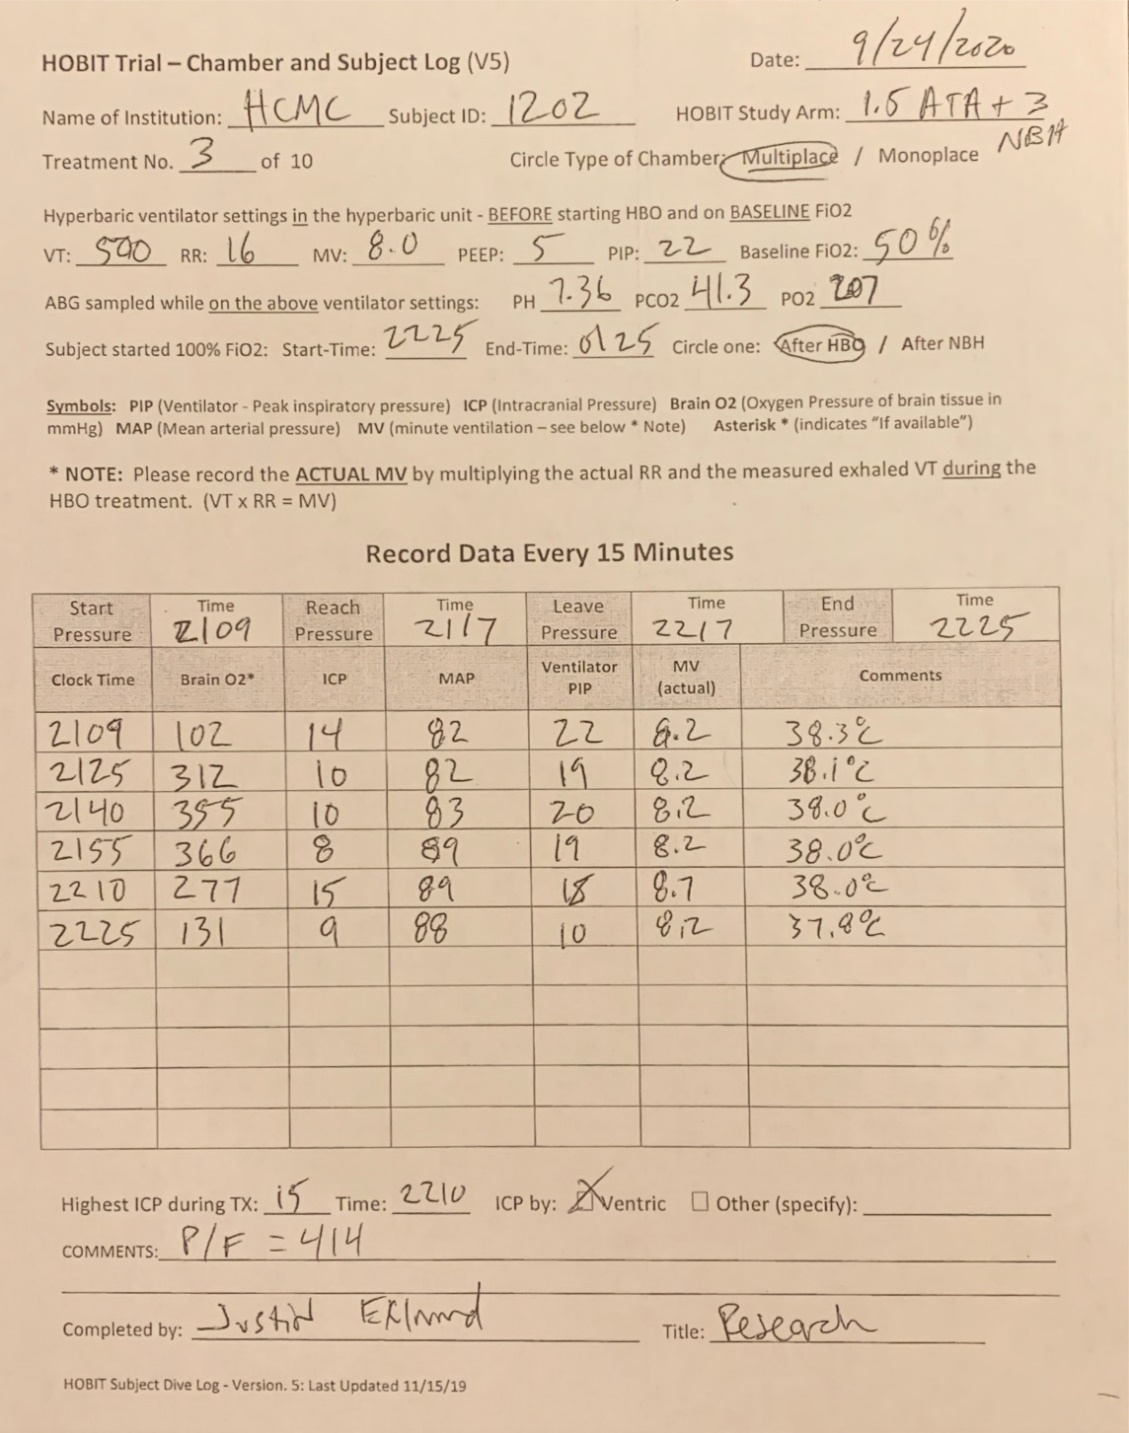 HOBIT Trial – Chamber and Subject Log (V5) Date: 9/24/2020
Name of Institution: HCMC Subject ID: 1202 HOBIT Study Arm: 1.5 ATA + 3 NBH
Treatment No. 3 of 10 Circle Type of Chamber: Multiplace / Monoplace
Hyperbaric ventilator settings in the hyperbaric unit - BEFORE starting HBO and on BASELINE FiO2
VT: 500 RR: 16 MV: 8.0 PEEP: 5 PIP: 22 Baseline FiO2: 50%
ABG sampled while on the above ventilator settings: PH 7.36 PCO2 41.3 PO2 207
Subject started 100% FiO2: Start-Time: 2225 End-Time: 0125 Circle one: After HBO / After NBH
Symbols: PIP (Ventilator - Peak inspiratory pressure) ICP (Intracranial Pressure) Brain O2 (Oxygen Pressure of brain tissue in
mmHg) MAP (Mean arterial pressure) MV (minute ventilation – see below * Note) Asterisk * (indicates "If available")
* NOTE: Please record the ACTUAL MV by multiplying the actual RR and the measured exhaled VT during the
HBO treatment. (VT x RR = MV)
Record Data Every 15 Minutes
Start Pressure Time 2109 Reach Pressure Time 2117 Leave Pressure Time 2217 End Pressure Time 2225
Clock Time Brain O2* ICP MAP Ventilator PIP MV (actual) Comments
2109 102 14 82 22 8.2 38.3°C
2125 312 10 82 19 8.2 38.1°C
2140 355 10 83 20 8.2 38.0°C
2155 366 8 89 19 8.2 38.0°C
2210 277 15 89 18 8.7 38.0°C
2225 131 9 88 10 8.2 37.8°C
Highest ICP during TX: 15 Time: 2210 ICP by: Ventric ☐ Other (specify):
COMMENTS: P/F = 414
Completed by: Justin Title: Research
HOBIT Subject Dive Log - Version. 5: Last Updated 11/15/19